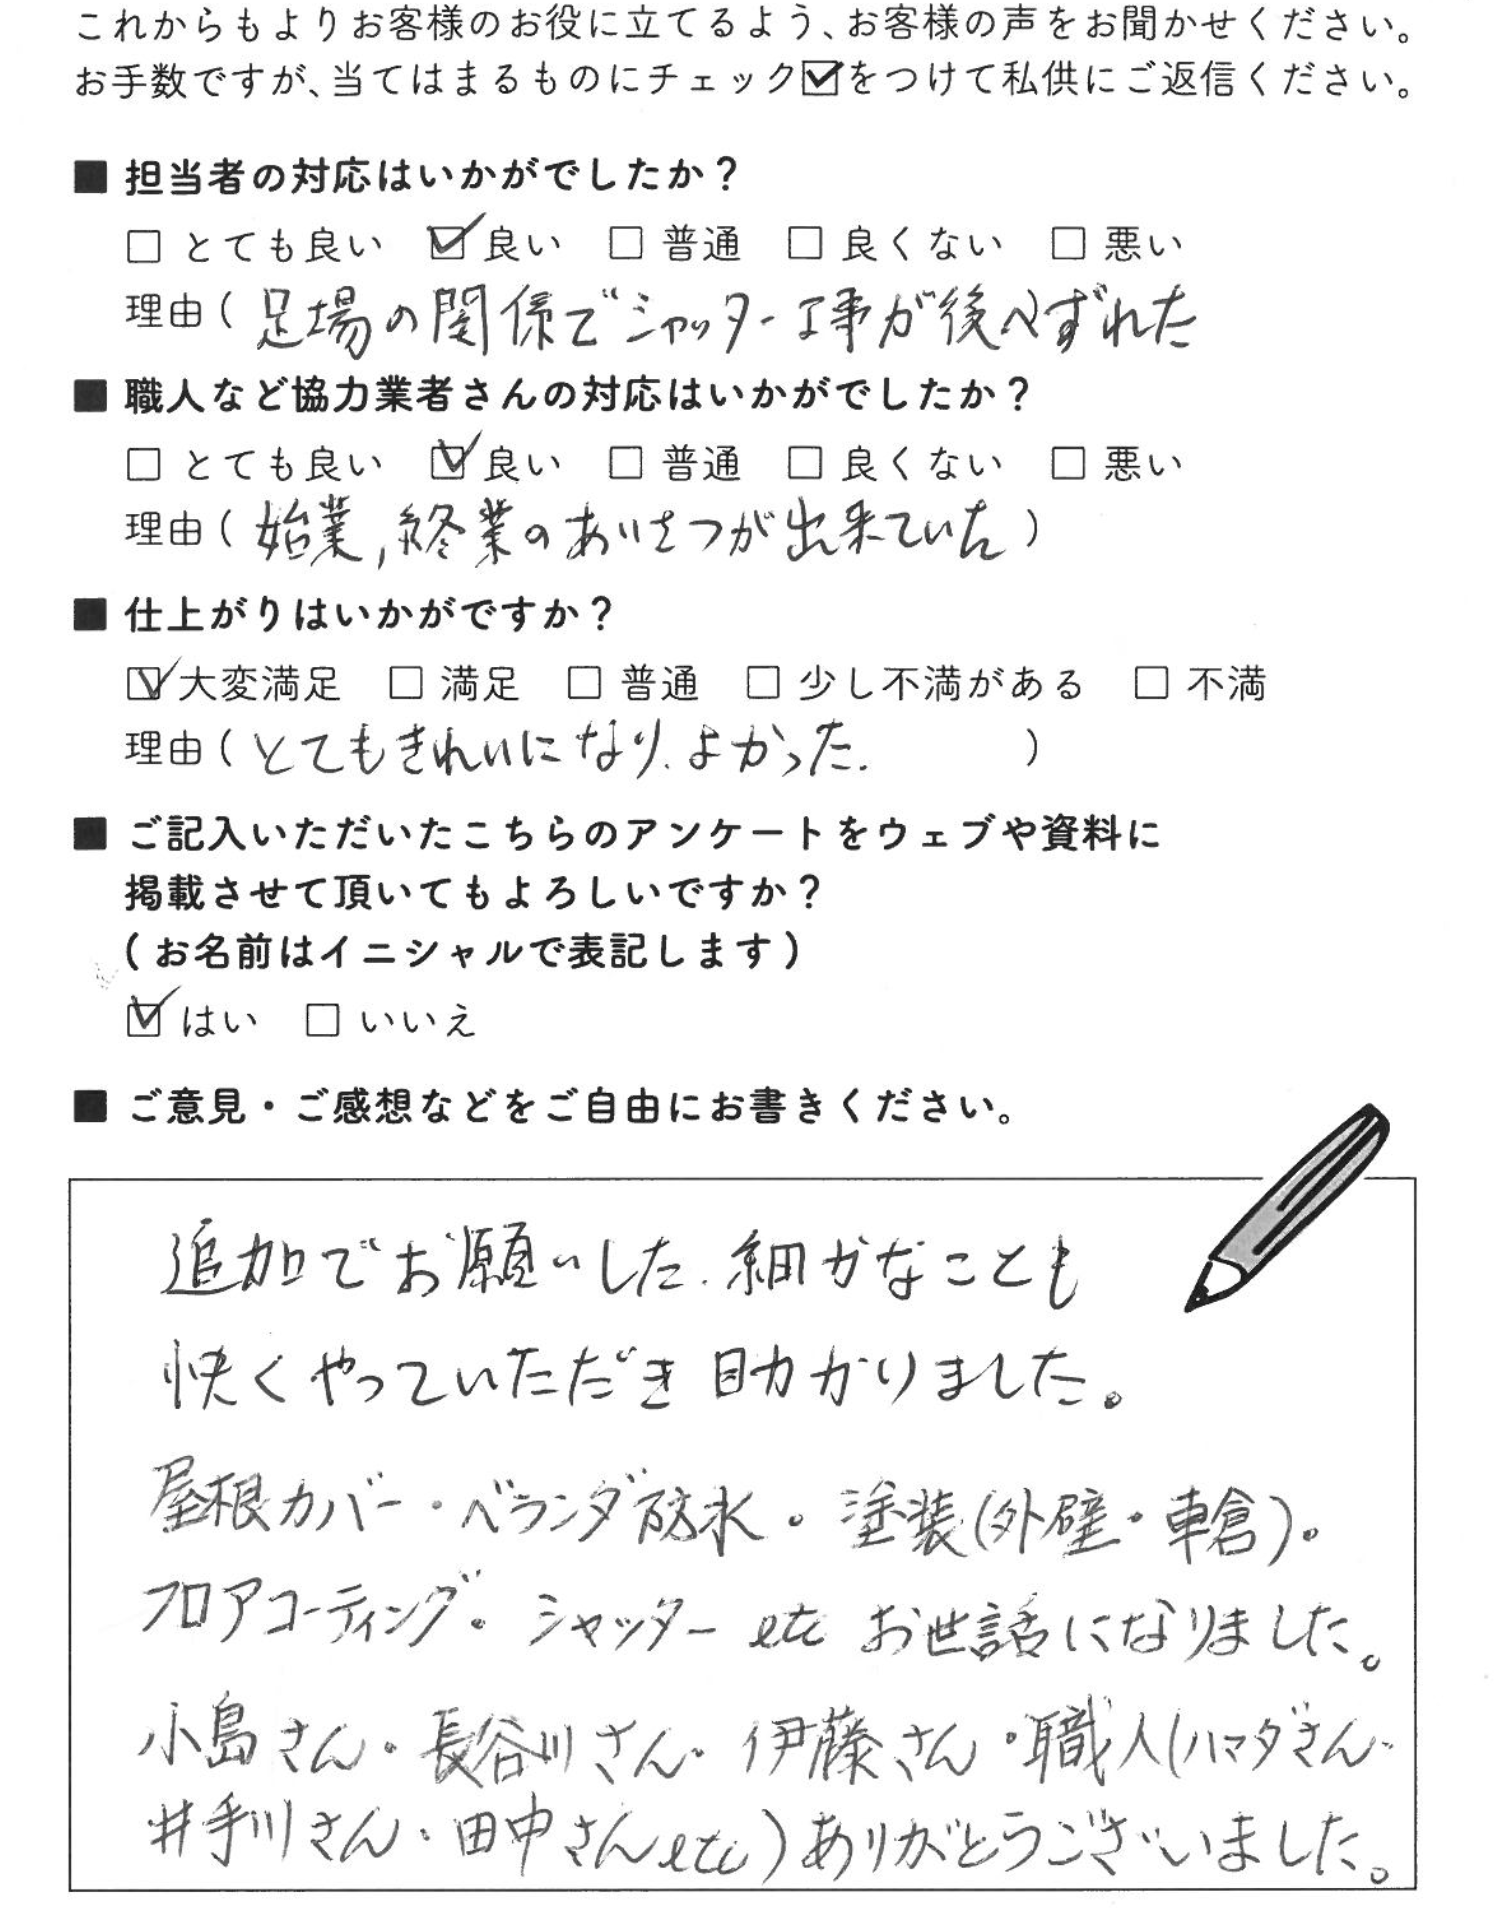 これからもよりお客様のお役に立てるよう、お客様の声をお聞かせください。
お手数ですが、当てはまるものにチェック☑をつけて私供にご返信ください。
■ 担当者の対応はいかがでしたか？
□ とても良い ☑ 良い □ 普通 □ 良くない □ 悪い
理由（ 足場の関係でシャッター工事が後へずれた
■ 職人など協力業者さんの対応はいかがでしたか？
□ とても良い ☑ 良い □ 普通 □ 良くない □ 悪い
理由（ 始業,終業のあいさつが出来ていた ）
■ 仕上がりはいかがですか？
☑ 大変満足 □ 満足 □ 普通 □ 少し不満がある □ 不満
理由（ とてもきれいになり、よかった. ）
■ ご記入いただいたこちらのアンケートをウェブや資料に
掲載させて頂いてもよろしいですか？
（お名前はイニシャルで表記します）
☑ はい □ いいえ
■ ご意見・ご感想などをご自由にお書きください。
追加でお願いした、細かなことも
快くやっていただき助かりました。
屋根カバー・ベランダ防水。塗装(外壁・車倉)。
フロアコーティング。シャッター etc お世話になりました。
小島さん・長谷川さん・伊藤さん・職人(ハマダさん・
井手川さん・田中さんetc)ありがとうございました。